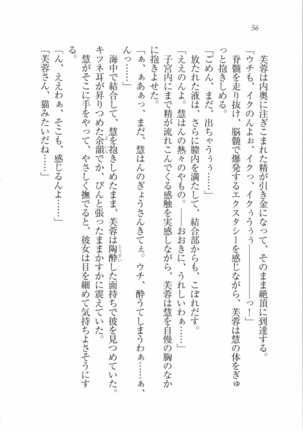 56
芙蓉は内奥に注ぎこまれた精が引き金になって、そのまま絶頂に到達する。
「ウチも、イクのんよぉ、イクっ、イクぅうぅぅ━━━っ！」
脊髄を走り抜け、脳髄で爆発するエクスタシーを感じながら、芙蓉は慧の体をぎゅ
っと抱きしめる。
「ごめん、まだ、出ちゃうぅぅっ……」
放たれた液は、さらに膣内を満たして、結合部からも、こぼれだす。
「ええのんよ。慧はんの熱々のやもの。━━━おおきに、うれしいわぁ……」
子宮内にまで精が流れこんでくる感触を実感しながら、芙蓉は慧を自慢の胸のなか
に抱きよせた。
「ぁ、ぁあぁっ、まだ、慧はんのぎょうさんきてぇ。ウチ、酔うてしまうわぁ……ぁ、
んっ……」
海中で結合して、慧を抱きしめたまま、芙蓉は陶酔した面持ちで彼を見つめていた。
キツネ耳が昇りつめた余韻でか、ぴんと張ったままかすかに震えていた。
慧がそこに手をやって、やさしく撫でると、彼女は目を細めて気持ちよさそうにす
る。
「ん、ええわぁ、そこも、感じるんよ……」
「芙蓉さん、猫みたいだね……」